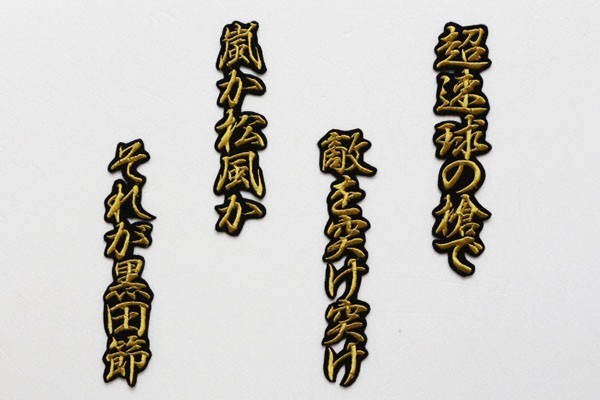 超速球の槍で
敵を突け突け
嵐か松風か
それが黒田節